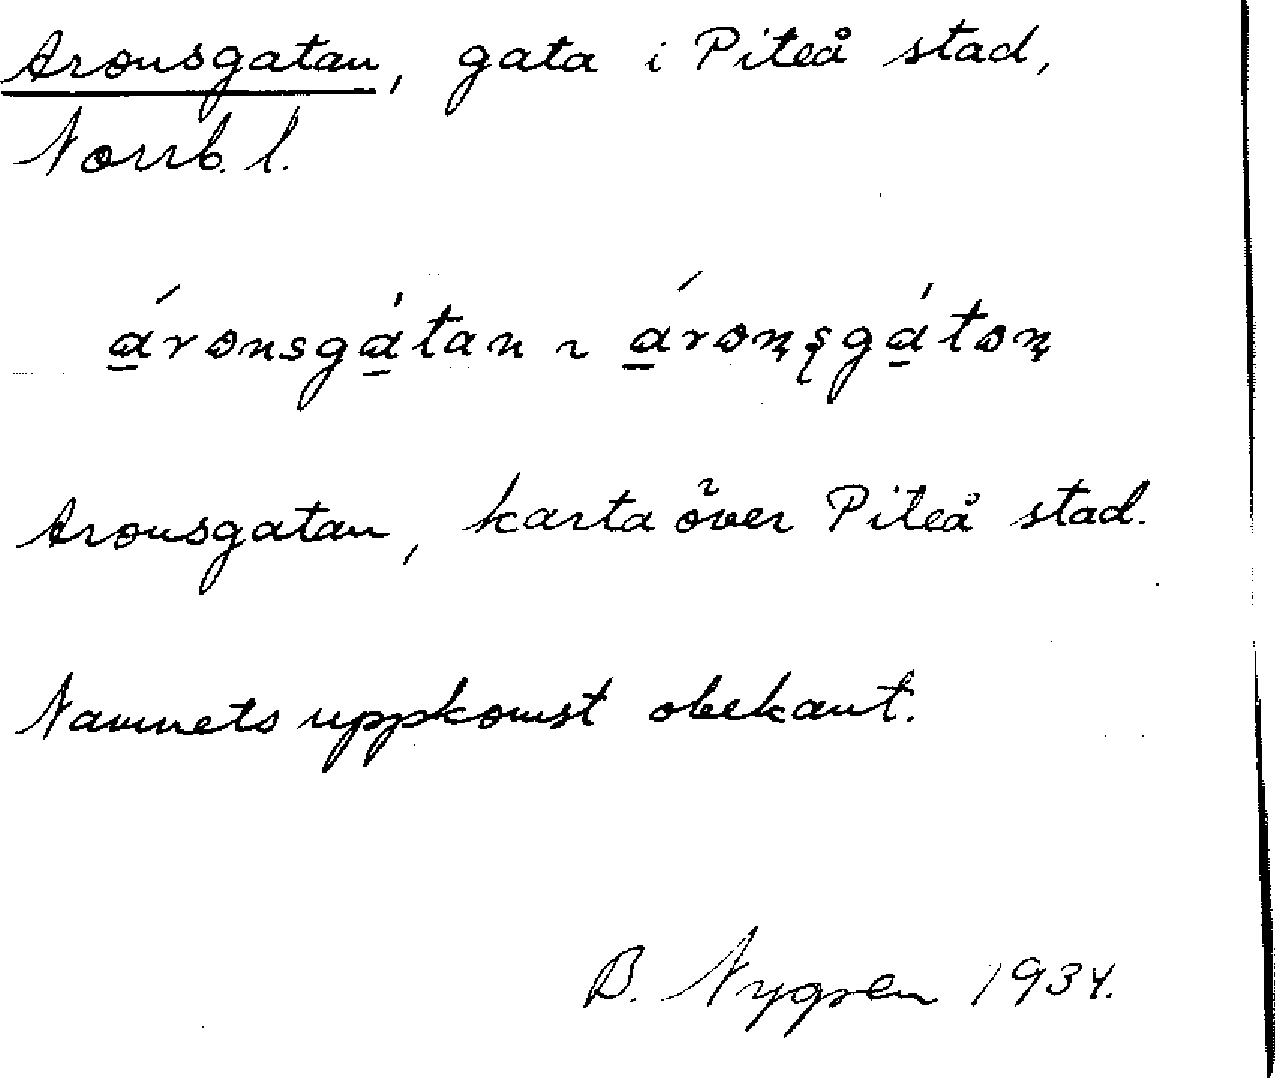 Aronsgatan, gata i Piteå stad,
Norrb. l.
á̲ronsga̲̍tan ~ á̲roṇṣga̲̍toṇ
Aronsgatan, karta över Piteå stad.
Namnets uppkomst obekant.
B. Nygren 1934.